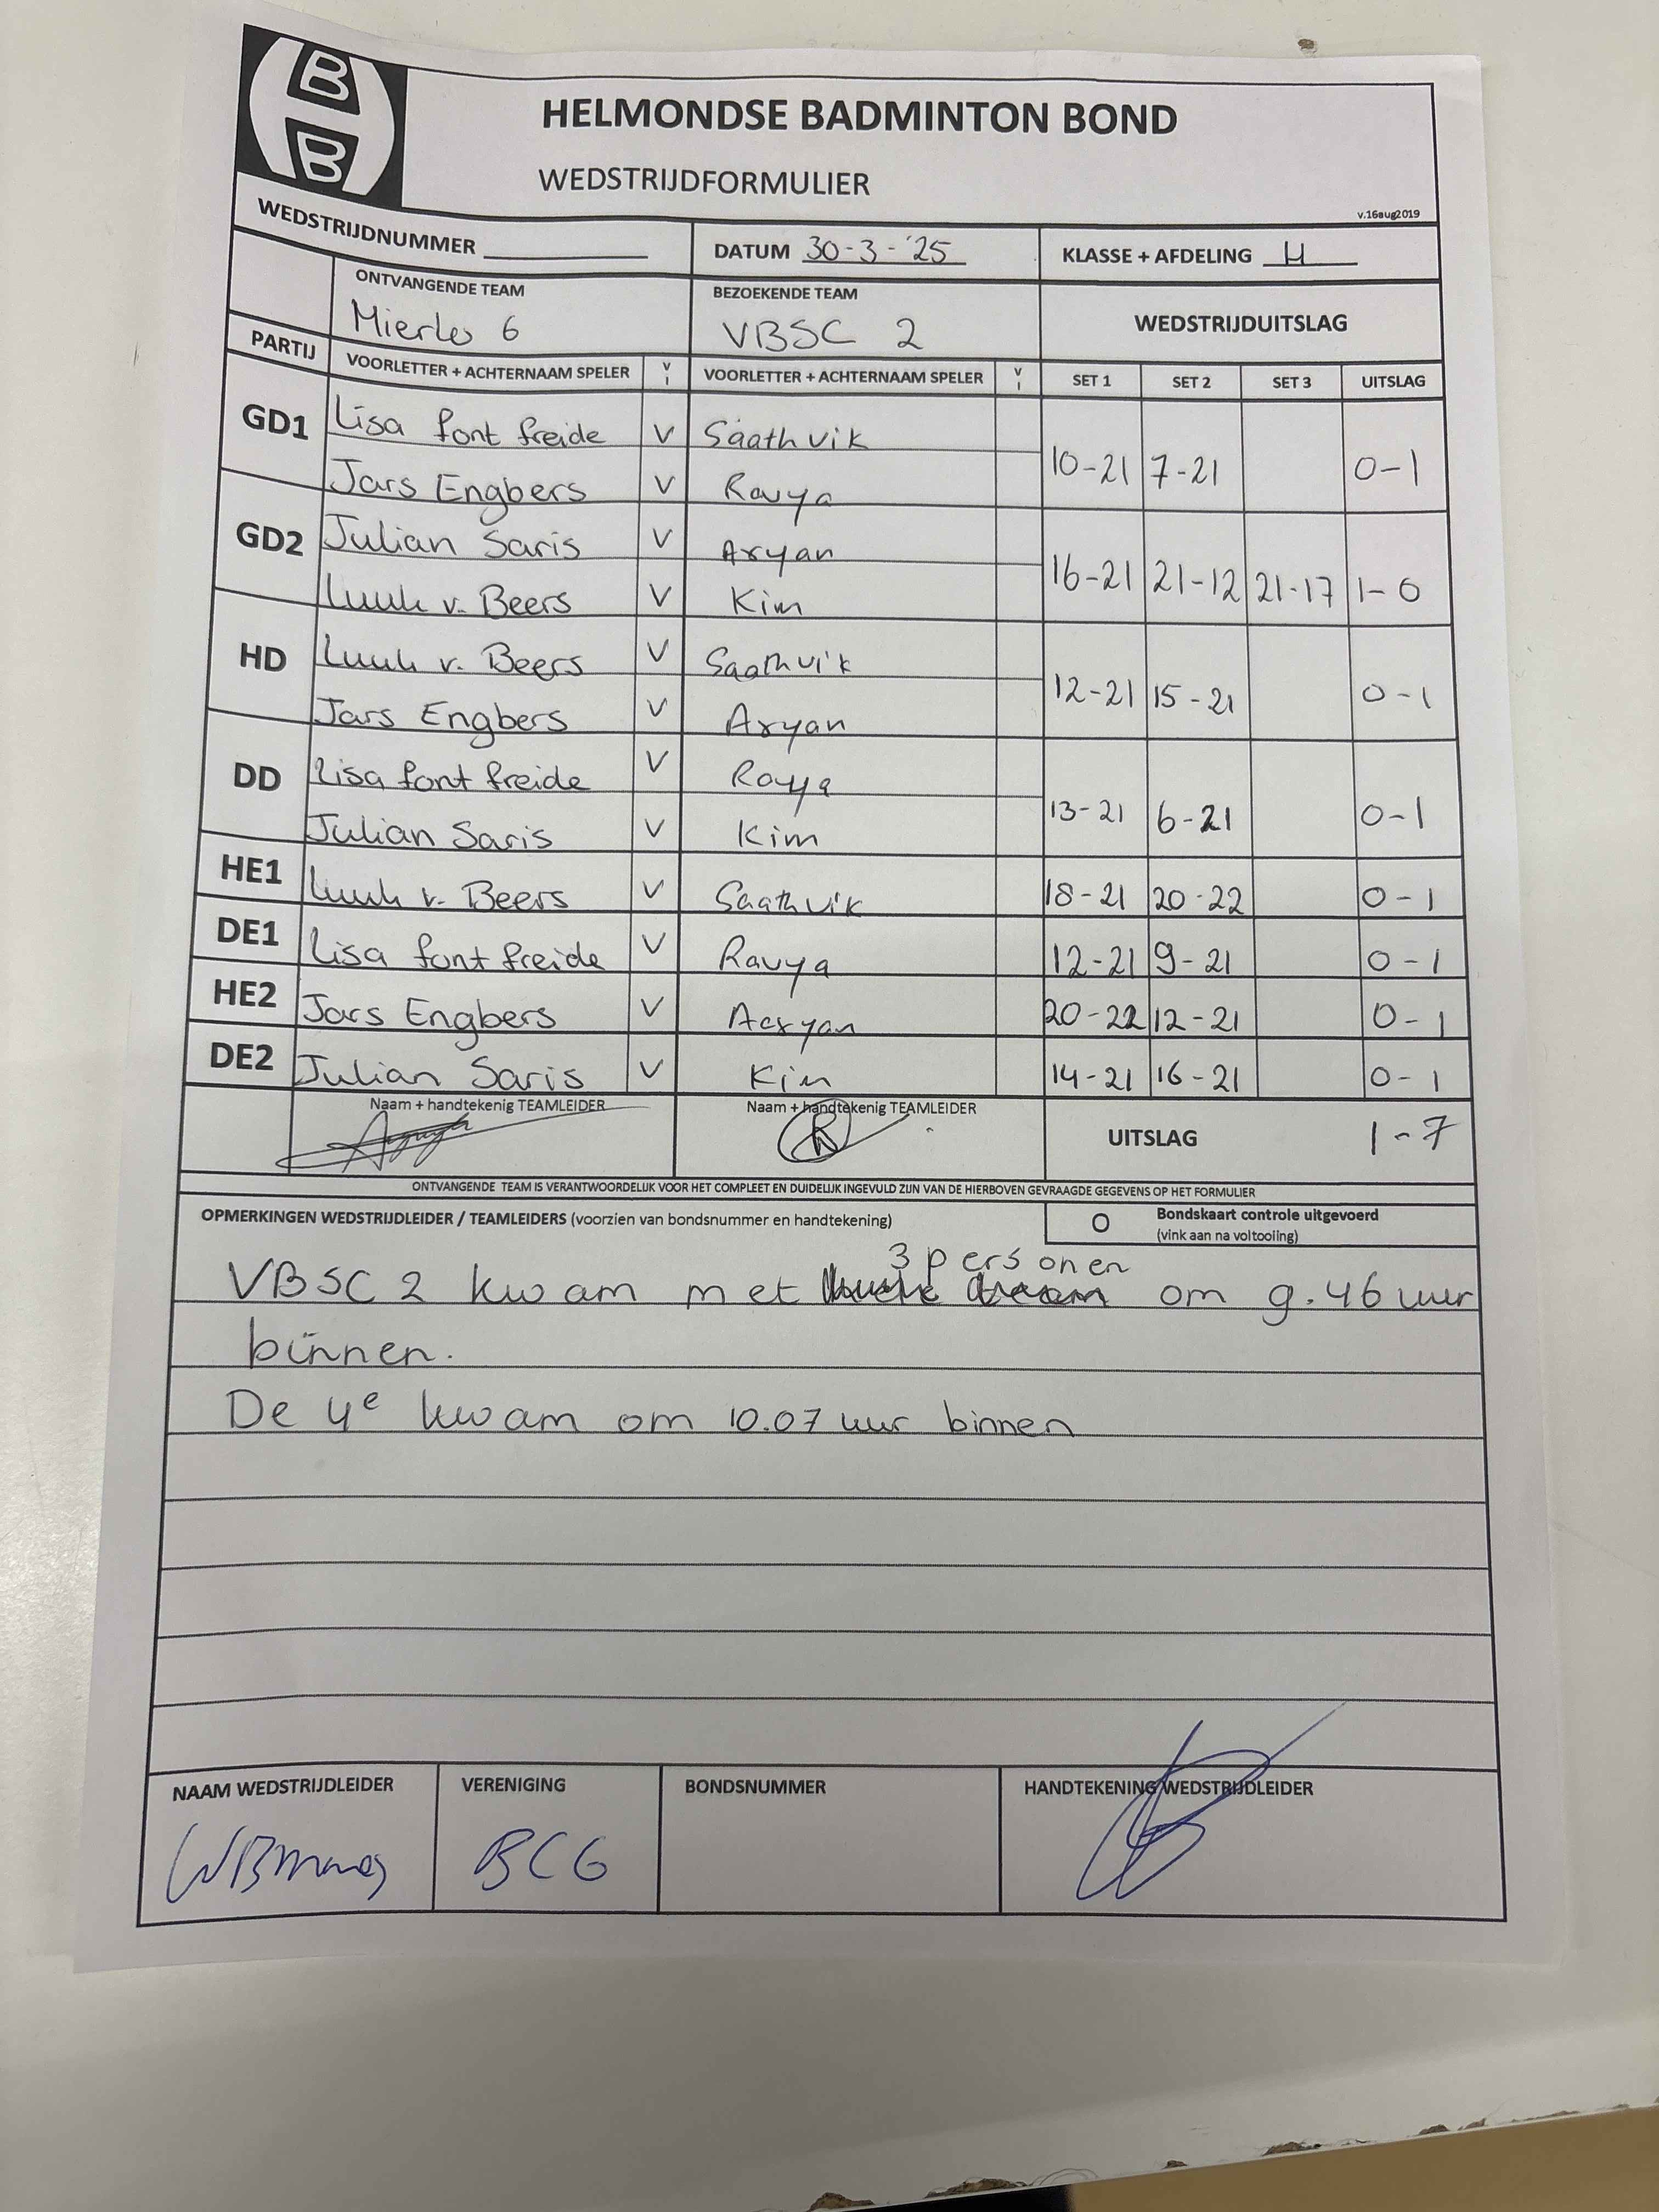 B
B
HELMONDSE BADMINTON BOND
WEDSTRIJDFORMULIER
v.16aug2019
WEDSTRIJDNUMMER
DATUM 30-3-'25
KLASSE + AFDELING H
ONTVANGENDE TEAM
Mierlo 6
BEZOEKENDE TEAM
VBSC 2
WEDSTRIJDUITSLAG
PARTIJ VOORLETTER + ACHTERNAAM SPELER V I VOORLETTER + ACHTERNAAM SPELER V I SET 1 SET 2 SET 3 UITSLAG
GD1 Lisa font freide V Saathvik
Jars Engbers V Ravya 10-21 7-21 0-1
GD2 Julian Saris V Aryan
Luuk v. Beers V Kim 16-21 21-12 21-17 1-0
HD Luuk v. Beers V Saathvik
Jars Engbers V Aryan 12-21 15-21 0-1
DD Lisa font freide V Ravya
Julian Saris V Kim 13-21 6-21 0-1
HE1 Luuk v. Beers V Saathvik 18-21 20-22 0-1
DE1 Lisa font freide V Ravya 12-21 9-21 0-1
HE2 Jars Engbers V Aaryan 20-22 12-21 0-1
DE2 Julian Saris V Kim 14-21 16-21 0-1
Naam + handtekenig TEAMLEIDER
Naam + handtekenig TEAMLEIDER
UITSLAG 1-7
ONTVANGENDE TEAM IS VERANTWOORDELIJK VOOR HET COMPLEET EN DUIDELIJK INGEVULD ZIJN VAN DE HIERBOVEN GEVRAAGDE GEGEVENS OP HET FORMULIER
OPMERKINGEN WEDSTRIJDLEIDER / TEAMLEIDERS (voorzien van bondsnummer en handtekening)
O Bondskaart controle uitgevoerd
(vink aan na voltooiing)
3 personen
VBSC 2 kwam met om 9.46 uur
binnen.
De 4e kwam om 10.07 uur binnen
NAAM WEDSTRIJDLEIDER
VERENIGING
BCG
BONDSNUMMER
HANDTEKENING WEDSTRIJDLEIDER